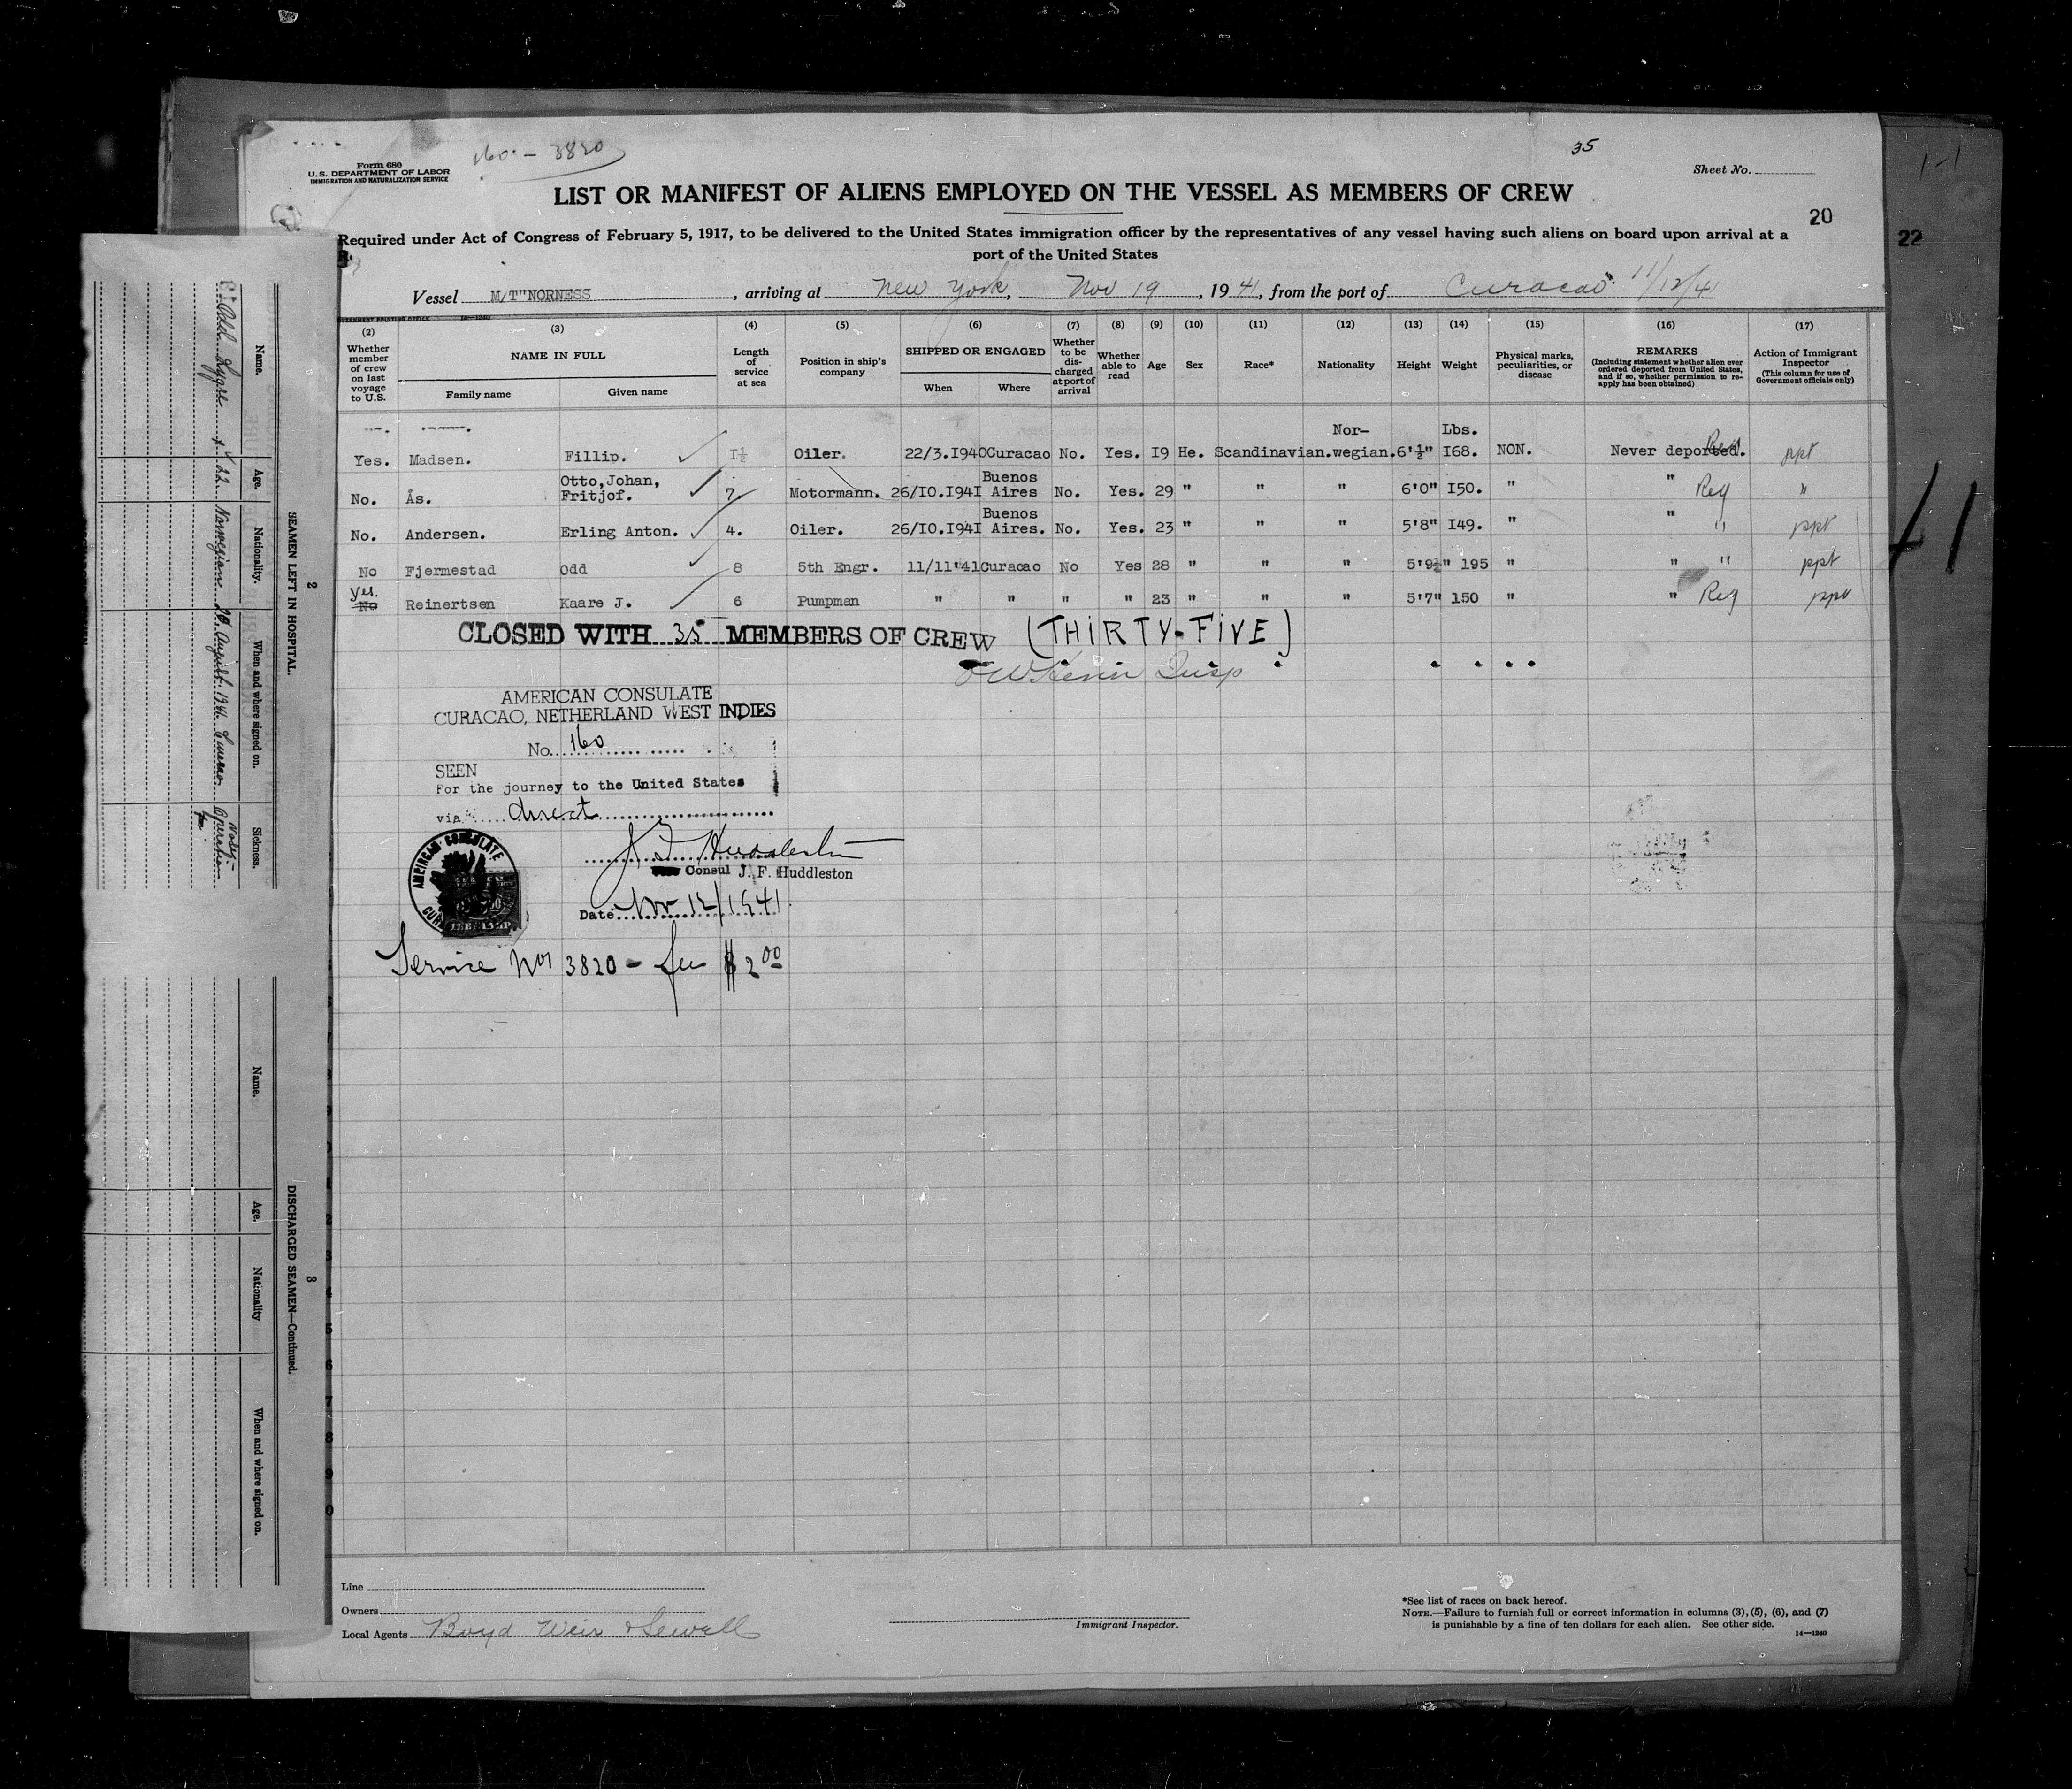 160 - 3820
35
Form 680
U.S. DEPARTMENT OF LABOR
IMMIGRATION AND NATURALIZATION SERVICE
Sheet No.
LIST OR MANIFEST OF ALIENS EMPLOYED ON THE VESSEL AS MEMBERS OF CREW
20
22
Required under Act of Congress of February 5, 1917, to be delivered to the United States immigration officer by the representatives of any vessel having such aliens on board upon arrival at a
port of the United States
Vessel M/T"NORNESS, arriving at New York, Nov 19, 1941, from the port of Curacao 11/12/41
(2) (3) (4) (5) (6) (7) (8) (9) (10) (11) (12) (13) (14) (15) (16) (17)
Whether member of crew on last voyage to U.S.
NAME IN FULL
Family name
Given name
Length of service at sea
Position in ship's company
SHIPPED OR ENGAGED
When
Where
Whether to be discharged at port of arrival
Whether able to read
Age
Sex
Race*
Nationality
Height
Weight
Physical marks, peculiarities, or disease
REMARKS
(Including statement whether alien ever ordered deported from United States, and if so, whether permission to reapply has been obtained)
Action of Immigrant Inspector
(This column for use of Government officials only)
Nor- Lbs.
Yes. Madsen. Fillip. I½ Oiler. 22/3.I940 Curacao No. Yes. I9 He. Scandinavian. wegian. 6'½" I68. NON. Never deported. Reg ppt
No. Ås. Otto,Johan, Fritjof. 7. Motormann. 26/IO.I94I Buenos Aires No. Yes. 29 " " " 6'0" I50. " " Reg "
No. Andersen. Erling Anton. 4. Oiler. 26/IO.I94I Buenos Aires. No. Yes. 23 " " " 5'8" I49. " " " ppt
No Fjermestad Odd 8 5th Engr. 11/11'41 Curacao No Yes 28 " " " 5'9½" 195 " " " ppt
Yes. No Reinertsen Kaare J. 6 Pumpman " " " " 23 " " " 5'7" 150 " " Reg ppt
CLOSED WITH 35 MEMBERS OF CREW (THIRTY-FIVE)
AMERICAN CONSULATE
CURACAO, NETHERLAND WEST INDIES
No. 160
SEEN
For the journey to the United States
via direct
J F Huddleston
Consul J. F. Huddleston
Date Nov 12/1941.
AMERICAN CONSULATE
Service No 3820 - fee $2.00
41
Line
Owners
Local Agents Boyd Weir & Sewall
Immigrant Inspector.
*See list of races on back hereof.
NOTE.—Failure to furnish full or correct information in columns (3), (5), (6), and (7)
is punishable by a fine of ten dollars for each alien. See other side.
14—1240
2
SEAMEN LEFT IN HOSPITAL.
Name. Age. Nationality. When and where signed on. Sickness.
Odd 22 Norwegian 20 August 1941 Curacao Operation
3
DISCHARGED SEAMEN—Continued.
Name. Age. Nationality When and where signed on.